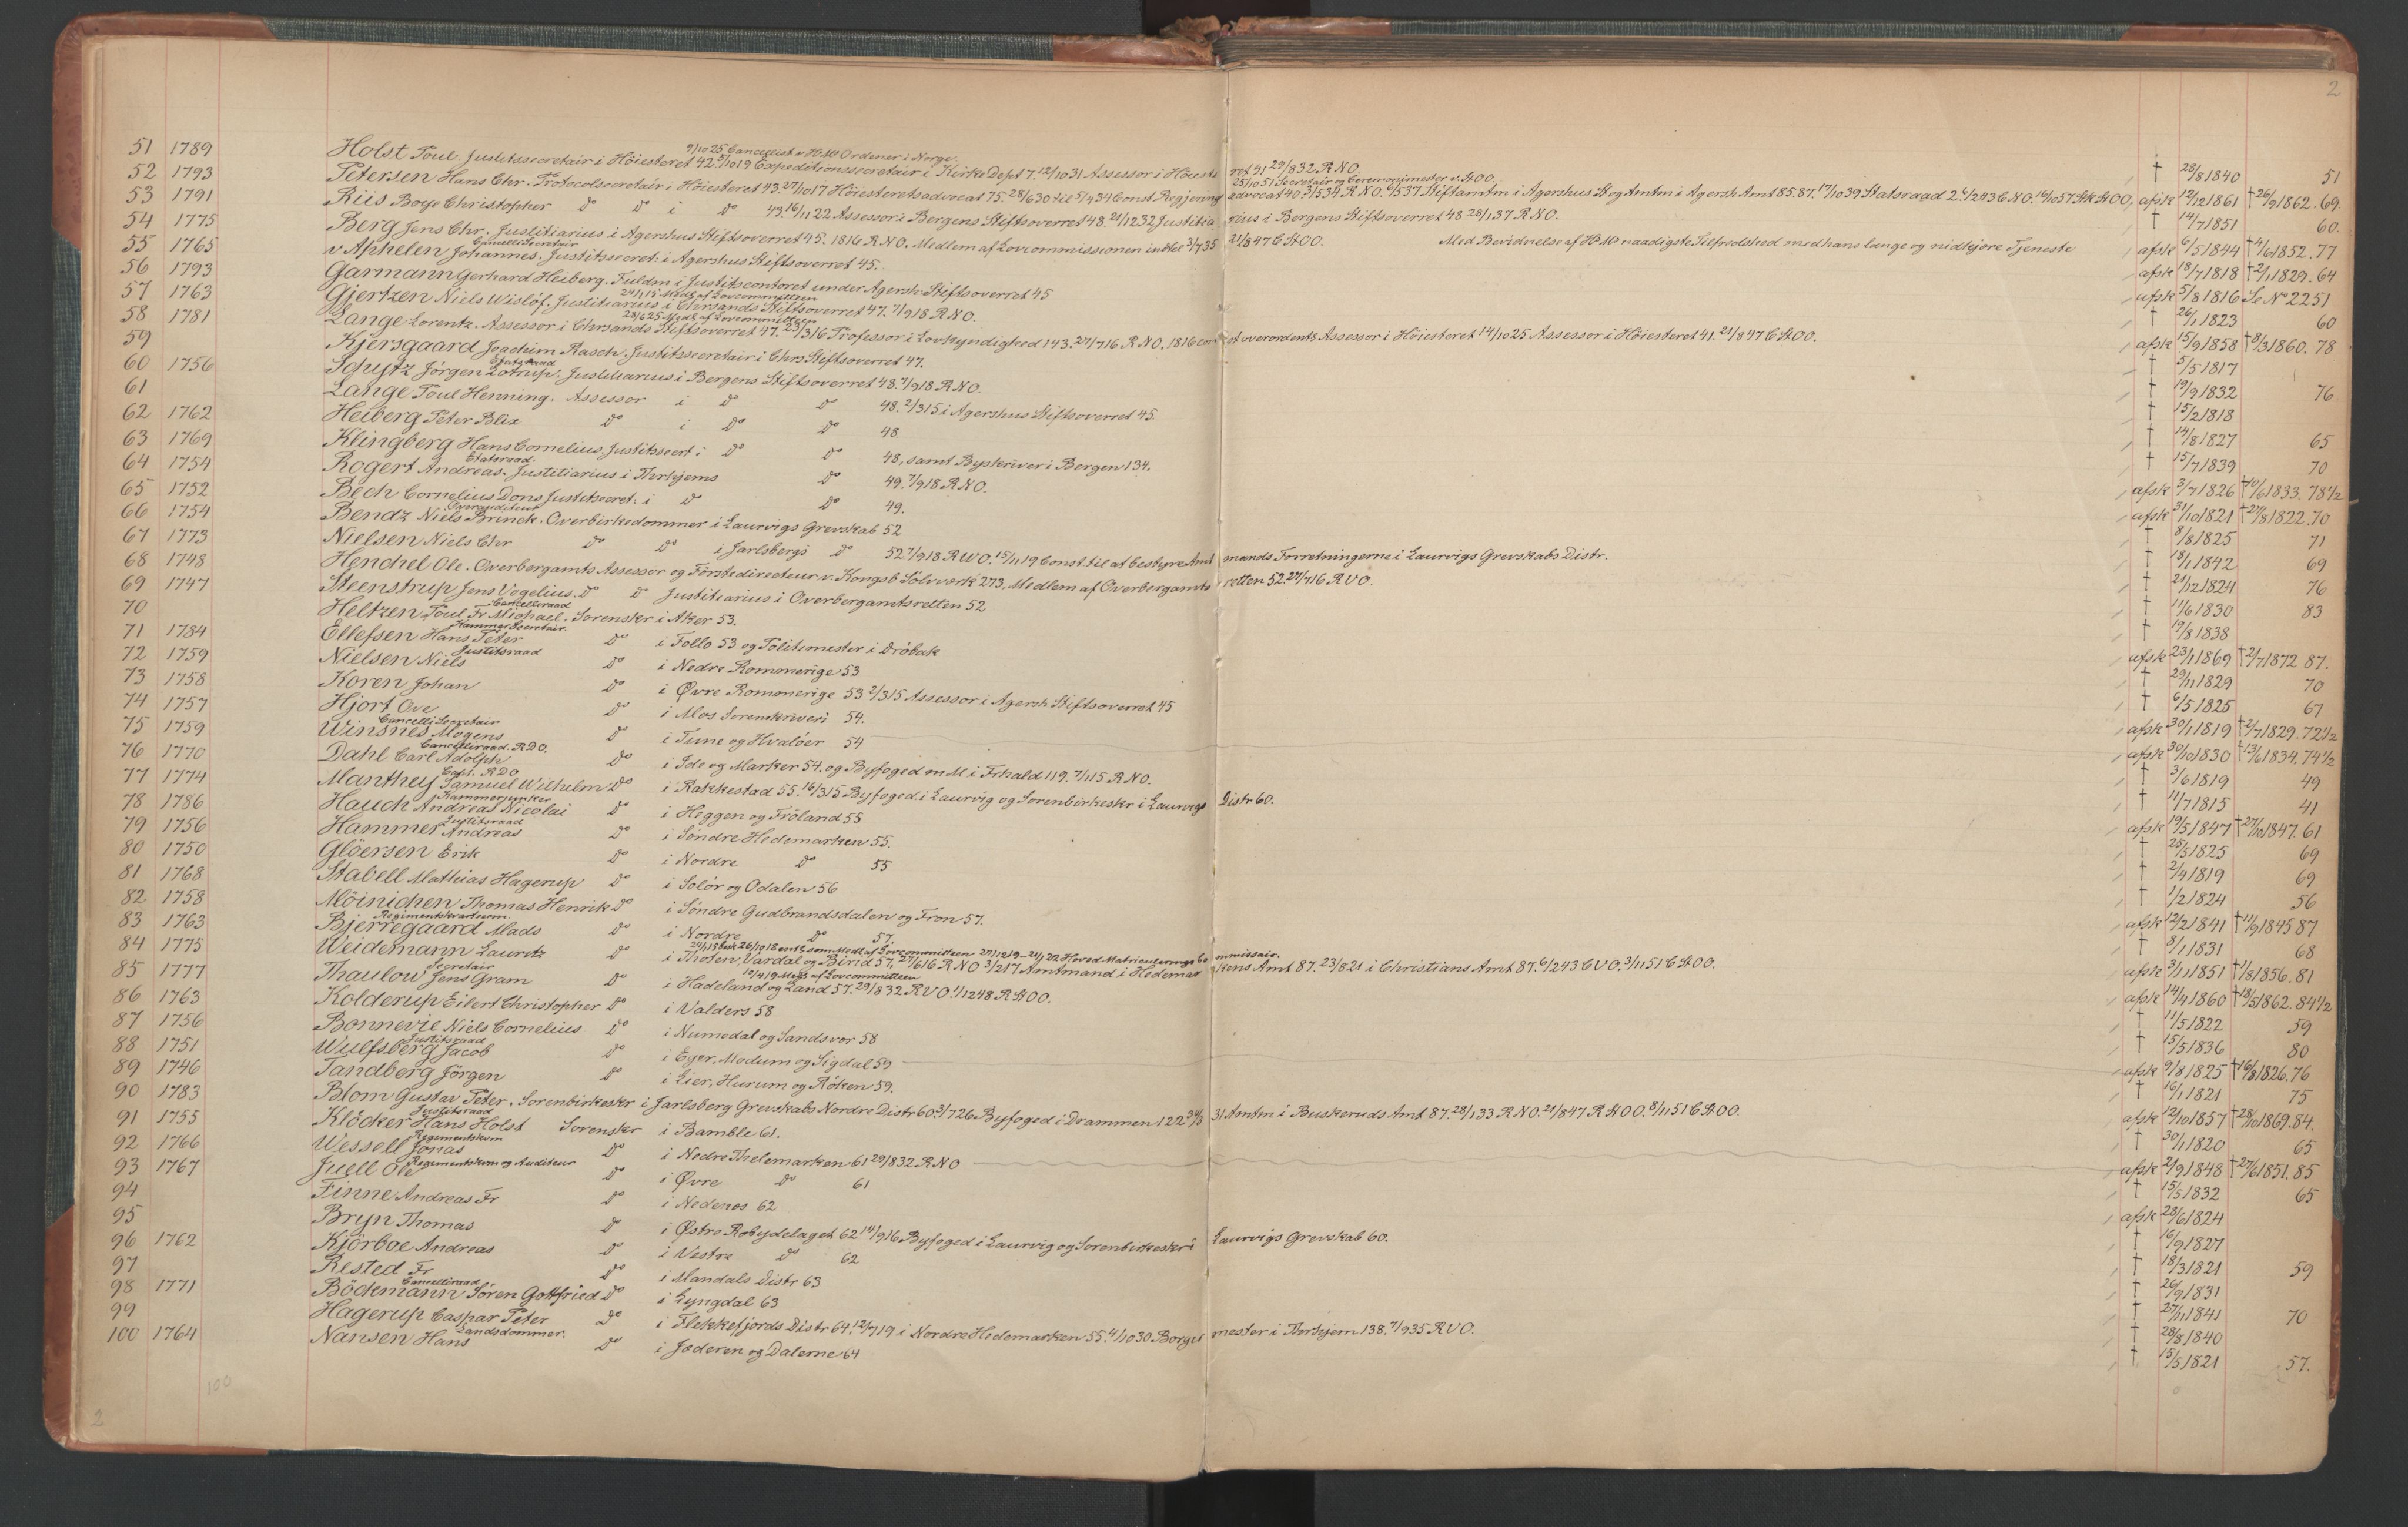 2
51 1789 Holst Poul. Justitssecretair i Höiesteret 42. 9/10 19 Expeditionssecretair i Kirke Dept 7. 12/10 31 Assessor i Höiesteret 41 29/8 32 R.N.O. † 28/8 1840 51
9/10 25 Cancellist v H.M. Ordener i Norge.
52 1793 Petersen Hans Chr. Protocolsecretair i Höiesteret 43. 27/10 17 Höiesteretsadvocat 75. 28/6 30 til 5/4 34 Const Regjeringsadvocat 40. 3/5 34 R.N.O. 4/5 37 Stiftamtm i Agershus St og Amtm i Agersh Amt 85.87. 17/10 39 Statsraad 2. 6/2 43 C.N.O. 14/10 57 StK St.O.O. afsk 12/12 1861 † 26/9 1862. 69.
25/10 51 Secretair og Ceremonimester v. St.O.O.
53 1791 Riis Boye Christopher do do i do 43. 16/11 22 Assessor i Bergens Stiftsoverret 48. 21/12 32 Justitiarius i Bergens Stiftsoverret 48 28/1 37 R.N.O. † 14/7 1851 60.
54 1775 Berg Jens Chr. Justitiarius i Agershus Stiftsoverret 45. 1816 R.N.O. Medlem af Lovcommissionen indtil 3/7 35 21/8 47 C St.O.O. Med Bevidnelse af H.M. naadigste Tilfredshed med hans lange og nidkjöre Tjeneste afsk 6/5 1844 † 4/6 1852. 77
55 1765 v Aphelen Johannes. Justitssecret. i Agershus Stiftsoverret 45. afsk 18/7 1818 † 2/1 1829. 64
Cancelli Secretair
56 1793 Garmann Gerhard Heiberg. Fuldm i Justitscontoret under Agersh. Stiftsoverret 45 afsk 5/8 1816 Se No 2251
57 1763 Gjertzen Niels Wislöf. Justitiarius i Chrsands Stiftsoverret 47. 7/9 18 R.N.O. † 26/1 1823 60
24/1 15 Medl af Lovcommitteen
58 1781 Lange Lorentz. Assessor i Chrsands Stiftsoverret 47. 23/3 16 Professor i Lovkyndighed 143. 27/7 16 R.N.O. 1816 const overordentl. Assessor i Höiesteret 14/10 25 Assessor i Höiesteret 41. 21/8 47 C St.O.O. afsk 15/9 1858 † 8/3 1860. 78
28/6 25 Medl af Lovcommitteen
59 Kjersgaard Joachim Rasch. Justitssecretair i Chrs Stiftsoverret 47. † 5/5 1817
60 1756 Schytz Jörgen Lotrup. Justitiarius i Bergens Stiftsoverret 48. 7/9 18 R.N.O. † 19/9 1832 76
Etatsraad
61 Lange Poul Henning. Assessor i do do 48. 2/3 15 i Agershus Stiftsoverret 45. † 15/2 1818
62 1762 Heiberg Peter Blix do i do do 48 † 14/8 1827 65
63 1769 Klingberg Hans Cornelius, Justitssecrt i do do 48, samt Byskriver i Bergen 134. † 15/7 1839 70
64 1754 Rogert Andreas. Justitiarius i Thrhjems do 49. 7/9 18 R.N.O. afsk 3/7 1826 † 10/6 1833. 78 1/2
Etatsraad
65 1752 Bech Cornelius Dons Justitsecret: i do do 49. afsk 31/10 1821 † 27/8 1822. 70
66 1754 Bendz Niels Brinck. Overbirkedommer i Laurvigs Grevskab 52 † 8/8 1825 71
Overauditeur
67 1773 Nielsen Niels Chr do do i Jarlsbergs do 52 7/9 18 R.W.O. 15/11 19 Const til at bestyre Amtmands Forretningerne i Laurvigs Grevskabs Distr. † 18/1 1842 69
68 1748 Henchel Ole. Overbergamts Assessor og Förstedirecteur v. Kongsb Sölvværk 273. Medlem af Overbergamtsretten 52. 27/7 16 R.V.O. † 21/12 1824 76
69 1747 Steenstrup Jens Vogelius. do do Justitiarius i Overbergamtsretten 52 † 11/6 1830 83
70 Heltzen Poul Fr Michael. Sorenskr i Aker 53. † 19/8 1838
Cancelliraad
71 1784 Ellefsen Hans Peter do i Follo 53 og Politimester i Dröbak afsk 23/1 1869 † 2/7 1872. 87.
Kammer Secretair
72 1759 Nielsen Niels do i Nedre Rommerige 53 † 29/11 1829 70
Justitsraad
73 1758 Koren Johan do i Øvre Rommerige 53 2/3 15 Assessor i Agersh Stiftsoverret 45 † 6/5 1825 67
74 1757 Hjort Ove do i Mos Sorenskriveri 54. afsk 30/1 1819 † 2/7 1829. 72 1/2
75 1759 Winsnes Mogens do i Tune og Hvalöer 54 afsk 30/10 1830 † 13/6 1834. 74 1/2
Cancelli Secretair
76 1770 Dahl Carl Adolph do i Ide og Marker 54. og Byfoged m M i Frhald 119. 7/1 15 R.N.O. † 3/6 1819 49
Cancelliraad. R.D.O.
77 1774 Manthey Samuel Wilhelm do i Rakkestad 55. 16/3 15 Byfoged i Laurvig og Sorenbirkeskr i Laurvigs Distr 60. † 11/7 1815 41
Capt. R.D.O
78 1786 Hauch Andreas Nicolai do i Heggen og Fröland 55 afsk 19/5 1847 † 27/10 1847. 61
Kammerjunker
79 1756 Hammer Andreas do i Söndre Hedemarken 55. † 25/5 1825 69
Justitsraad
80 1750 Glöersen Erik do i Nordre do 55 † 2/4 1819 69
81 1768 Stabell Mathias Hagerup do i Solör og Odalen 56 † 1/2 1824 56
82 1758 Möinichen Thomas Henrik do i Söndre Gudbrandsdalen og Fron 57. afsk 12/2 1841 † 11/9 1845 87
83 1763 Bjerregaard Mads do i Nordre do 57. † 8/1 1831 68
Regimentskvarterm.
84 1775 Weidemann Lauritz do i Thoten, Vardal og Birid 57. 27/6 16 R.N.O 3/2 17 Amtmand i Hedemarkens Amt 87. 23/8 21 i Christians Amt 87. 6/2 43 C.V.O. 3/11 51 C St.O.O. afsk 3/11 1851 † 1/8 1856. 81
85 1777 Thaulow Jens Gram do i Hadeland og Land 57. 29/8 32 R.V.O. 1/12 48 R St.O.O. afsk 14/4 1860 † 18/5 1862. 84 1/2
Secretair 12/4 19 Medl af Lovcommitteen
86 1763 Kolderup Eilert Christopher do i Valders 58 † 11/5 1822 59
87 1756 Bonnevie Niels Cornelius do i Numedal og Sandsvør 58 † 15/5 1836 80
88 1751 Wulfsberg Jacob do i Eger, Modum og Sigdal 59 afsk 9/8 1825 † 16/8 1826. 76
Justitsraad
89 1746 Tandberg Jörgen do i Lier, Hurum og Röken 59. † 16/1 1821 75
90 1783 Blom Gustav Peter. Sorenbirkeskr i Jarlsberg Grevskabs Nordre Distr 60. 3/7 26 Byfoged i Drammen 122 31 Amtm i Buskeruds Amt 87. 28/1 33 R.N.O. 21/8 47 R St.O.O. 8/11 51 C St.O.O. afsk 12/10 1857 † 28/10 1869. 84.
91 1755 Klöcker Hans Holst Sorenskr i Bamble 61. † 30/1 1820 65
Justitsraad
92 1766 Wessell Jonas do i Nedre Thelemarken 61 29/8 32 R.N.O afsk 2/9 1848 † 27/6 1851. 85
Regimentskvm
93 1767 Juell Ole do i Øvre do 61 † 15/5 1832 65
Regimentskvm og Auditeur
94 Finne Andreas Fr do i Nedenæs 62 afsk 28/6 1824
95 Bryn Thomas do i Østre Robydelaget 62 14/9 16 Byfoged i Laurvig og Sorenbirkeskr i Laurvigs Grevskab 60. † 16/9 1827
96 1762 Kjörboe Andreas do i Vestre do 62 † 18/3 1821 59
97 Rested Fr do i Mandals Distr 63 † 26/9 1831
98 1771 Böckmann Sören Gottfried do i Lyngdal 63 † 27/11 1841 70
Cancelliraad
99 Hagerup Caspar Peter do i Flekkefjords Distr 64. 12/7 19 i Nordre Hedemarken 55. 4/10 30 Borgermester i Thrhjem 138. 7/9 35 R.V.O. † 28/8 1840
100 1764 Nansen Hans do i Jæderen og Dalerne 64 † 15/5 1821 57.
Landsdommer.
100
2